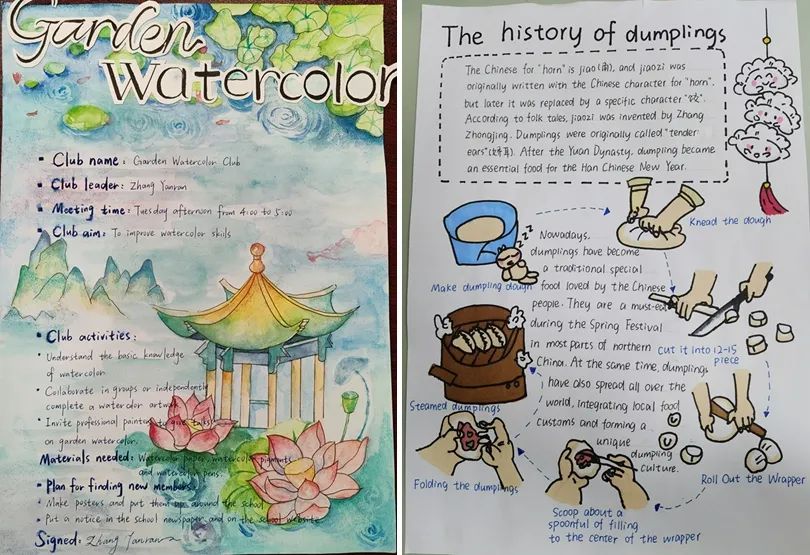 Garden
Watercolor
Club name: Garden Watercolor Club
Club leader: Zhang Yanran
Meeting time: Tuesday afternoon from 4:00 to 5:00
Club aim: To improve watercolor skills
Club activities:
Understand the basic knowledge
of watercolor
Collaborate in groups or independently
complete a watercolor artwork
Invite professional painters to give talks
on garden watercolor.
Materials needed: Watercolor paper, watercolor pigments
and watercolor pens.
Plan for finding new members:
Make posters and put them up around the school
Put a notice in the school newspaper and on the school website
Signed: Zhang Yanran
The history of dumplings
The Chinese for "horn" is jiao(角), and jiaozi was
originally written with the Chinese character for "horn",
but later it was replaced by a specific character "饺".
According to folk tales, jiaozi was invented by Zhang
Zhongjing. Dumplings were originally called "tender
ears"(娇耳). After the Yuan Dynasty, dumpling became
an essential food for the Han Chinese New Year.
Knead the dough
zzz
Make dumpling dough
Nowadays,
dumplings have become
a traditional special
food loved by the Chinese
people. They are a must-eat
during the Spring Festival
in most parts of northern
China. At the same time, dumplings
have also spread all over the
world, integrating local food
customs and forming a
unique
dumpling
culture.
Cut it into 12-15
piece
Steamed dumplings
Roll Out the Wrapper
Folding the dumplings
Scoop about a
spoonful of filling
to the center of the wrapper